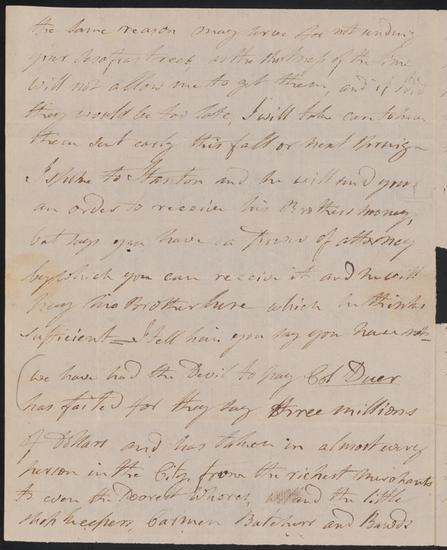 the same reason may serve for not sending
your Sasafras trees, as the shortness of the time
will not allow me to get them, and if I did
they would be too late, I will take care to have
them sent early this fall or next Spring
I spoke to Stanton and he will send you
an order to receive his Brothers money,
but says you have a Power of attorney
by which you can receive it and he will
pay his Brother here which he thinks
sufficient — I tell him you say you have not
(we have had the Devil to pay Col Duer
has failed for they say three millions
of Dollars and has taken in almost every
person in the City, from the richest merchants
to even the Poorest Whores, and the little
shop keepers, Carmen Butchers and Bawds